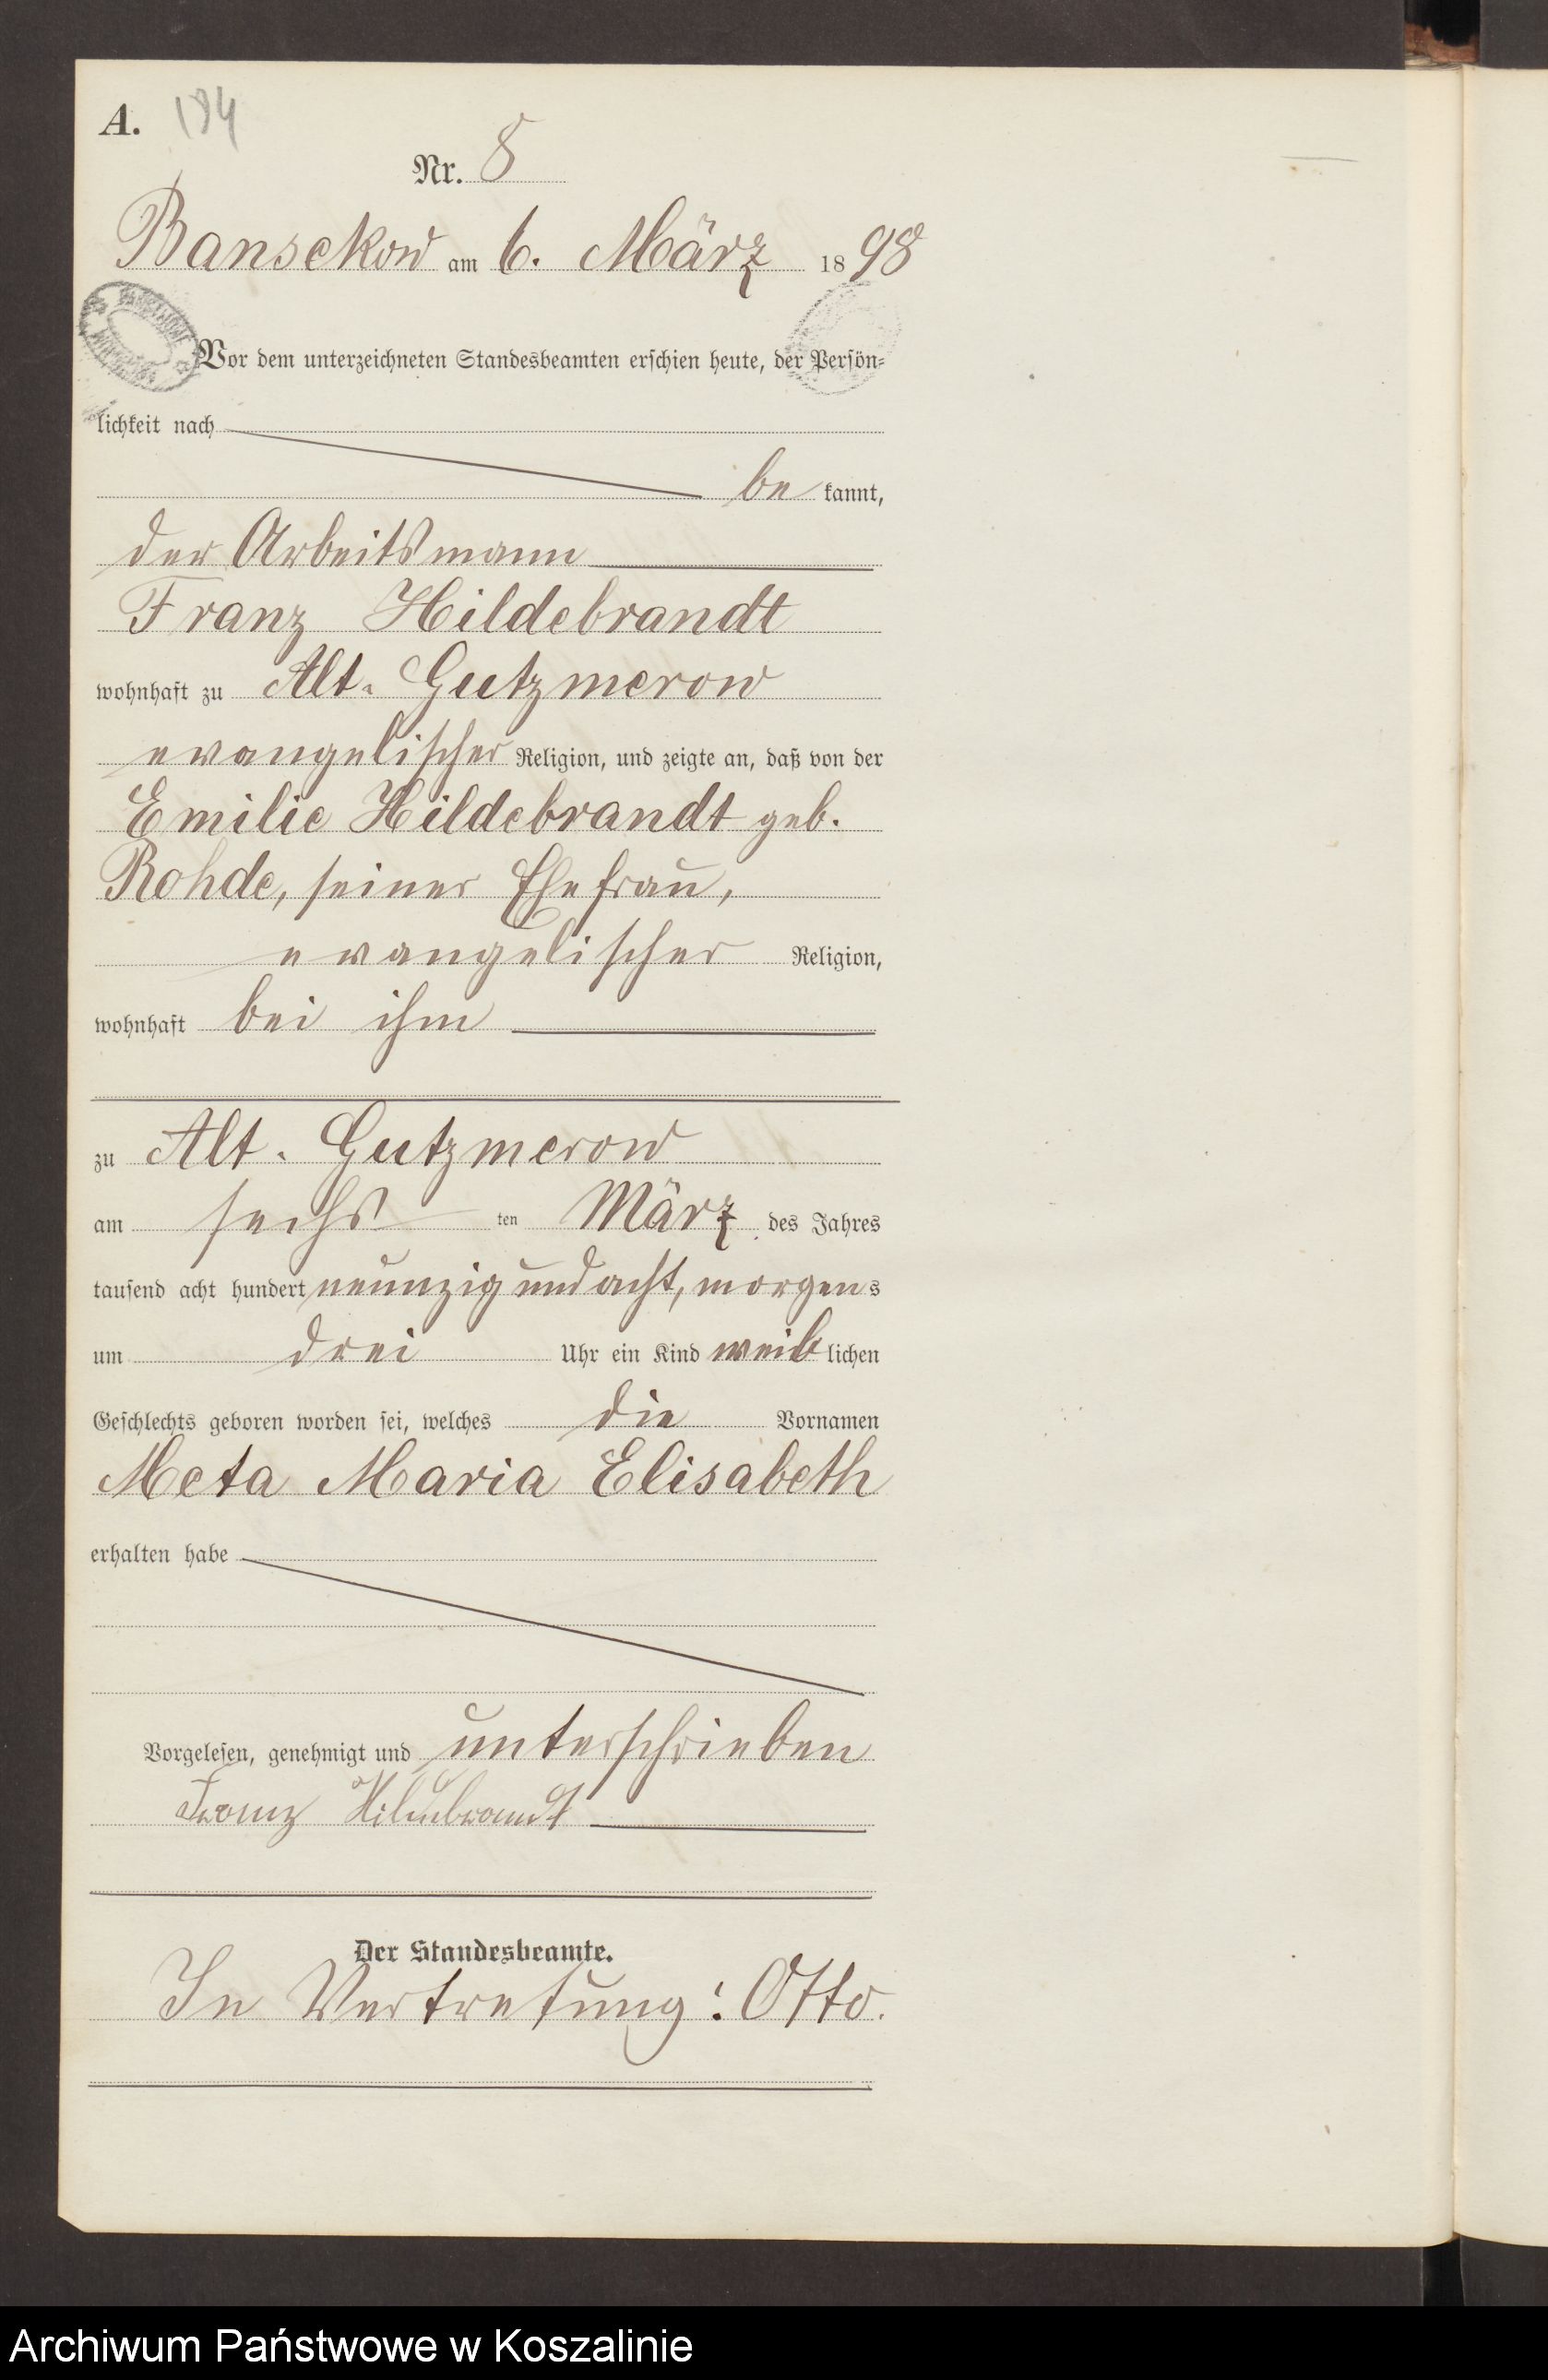 A. 184
Nr. 8
Bansekow am 6. März 1898
Vor dem unterzeichneten Standesbeamten erschien heute, der Persön-
lichkeit nach
be kannt,
der Arbeitsmann
Franz Hildebrandt
wohnhaft zu Alt-Gutzmerow
evangelischer Religion, und zeigte an, daß von der
Emilie Hildebrandt geb.
Rohde, seiner Ehefrau,
evangelischer Religion,
wohnhaft bei ihm
zu Alt-Gutzmerow
am sechs ten März des Jahres
tausend acht hundert neunzig und acht, morgens
um drei Uhr ein Kind weiblichen
Geschlechts geboren worden sei, welches die Vornamen
Meta Maria Elisabeth
erhalten habe
Vorgelesen, genehmigt und unterschrieben
Franz Hildebrandt
Der Standesbeamte.
In Vertretung: Otto.
Archiwum Państwowe w Koszalinie